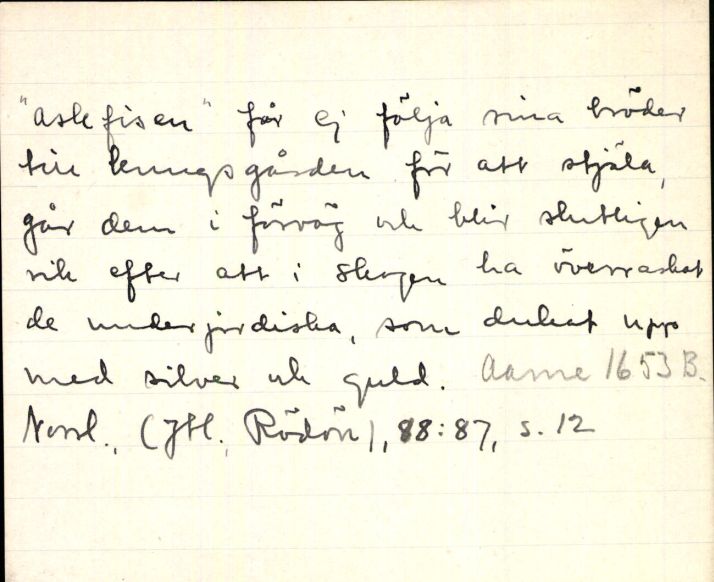 "Askefisen" får ej följa sina bröder
till kungsgården för att stjäla,
går dem i förväg och blir slutligen
rik efter att i skogen ha överraskat
de underjordiska, som dukat upp
med silver och guld. Aarne 1653 B.
Norrl., (Jtl., Rödön), 88:87, s. 12